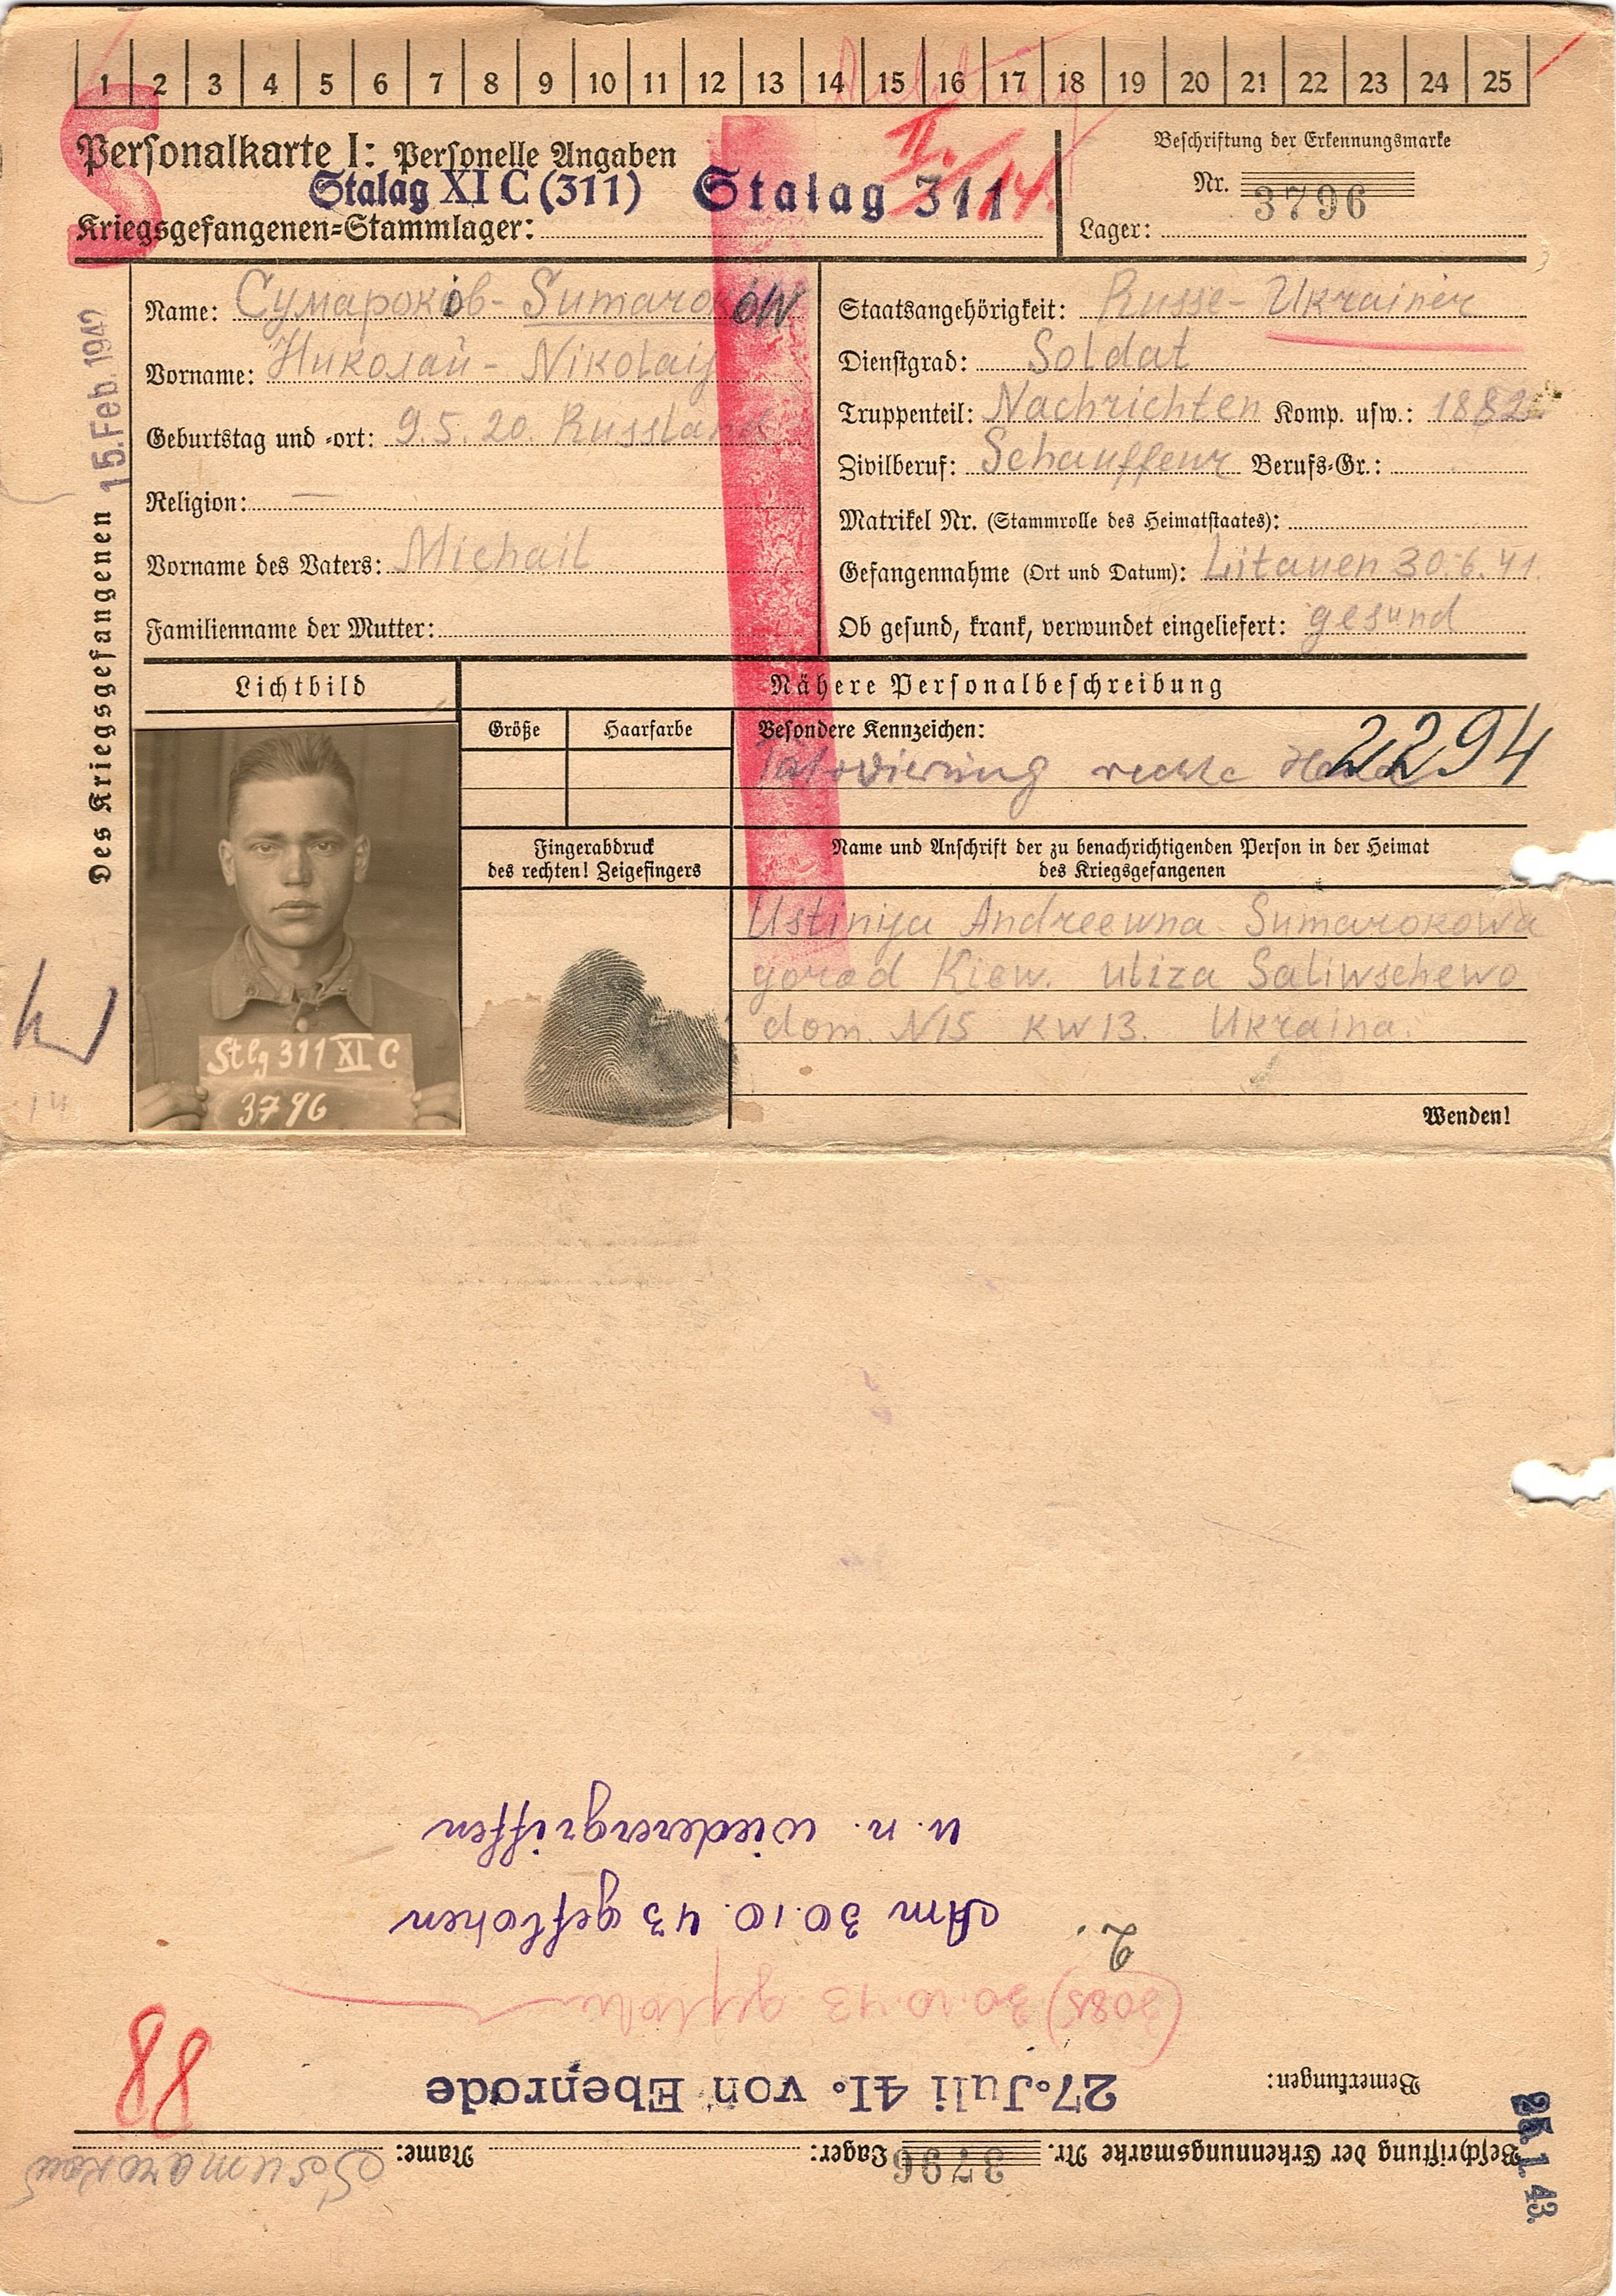 1 2 3 4 5 6 7 8 9 10 11 12 13 14 15 16 17 18 19 20 21 22 23 24 25
S
Personalkarte I: Personelle Angaben
II.
Beschriftung der Erkennungsmarke
Stalag XI C (311) Stalag 311
14.
Nr. 3796
Kriegsgefangenen-Stammlager:
Lager:
Des Kriegsgefangenen 15. Feb. 1942
Name: Сумароков - Sumarokow
Vorname: Николай - Nikolaij
Geburtstag und -ort: 9.5.20. Russland
Religion: —
Vorname des Vaters: Michail
Familienname der Mutter:
Staatsangehörigkeit: Russe - Ukrainer
Dienstgrad: Soldat
Truppenteil: Nachrichten Komp. usw.: 1882
Zivilberuf: Schauffeur Berufs-Gr.:
Matrikel Nr. (Stammrolle des Heimatstaates):
Gefangennahme (Ort und Datum): Litauen 30.6.41.
Ob gesund, krank, verwundet eingeliefert: gesund
Lichtbild
Nähere Personalbeschreibung
Größe Haarfarbe Besondere Kennzeichen:
Tätowierung rechte Hand
2294
Fingerabdruck
des rechten! Zeigefingers
Name und Anschrift der zu benachrichtigenden Person in der Heimat
des Kriegsgefangenen
Ustinija Andreewna Sumarokowa
gorod Kiew. uliza Saliwschewo
dom. N15 KW 13. Ukraina.
Stlg 311 XI C
3796
Wenden!
Beschriftung der Erkennungsmarke Nr. 3796 Lager: Name: Sumarokow
25. 1. 43.
Bemerkungen: 27. Juli 41. von Ebenrode
88
(3085) 30.10.43 geflohen
2. Am 30.10.43 geflohen
u. n. wiederergriffen